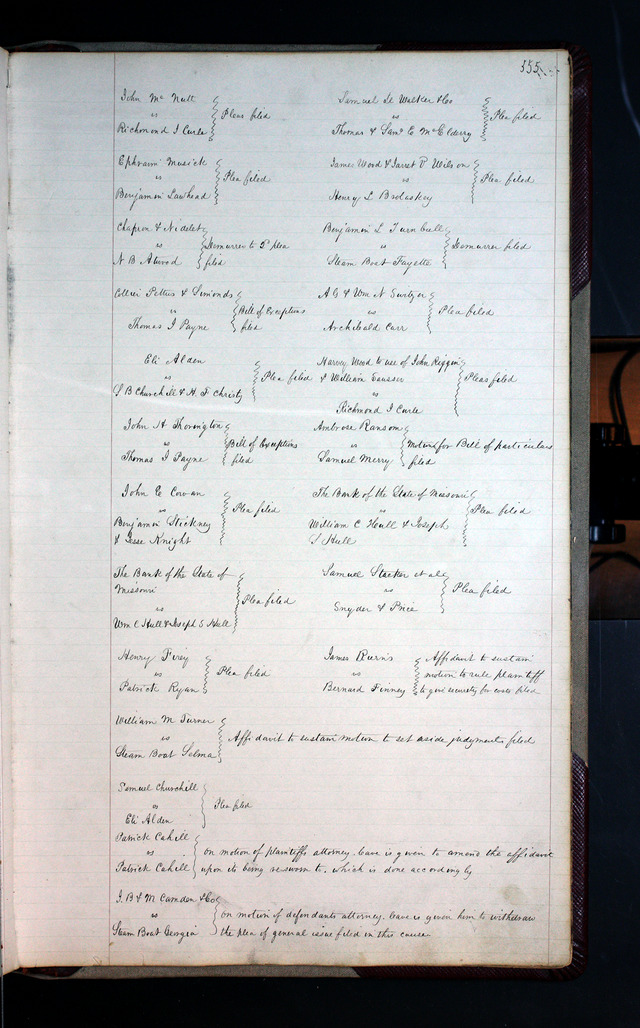 355
John Mc Nutt
vs
Richmond J Curle
Pleas filed
Samuel H Walker & Co
vs
Thomas & Saml E McElderry
Plea filed
Ephraim Musick
vs
Benjamin Lawhead
Plea filed
James Wood & Jarret P Wilson
vs
Henry L Brolaskey
Plea filed
Chapron & Nidelet
vs
N B Atwood
Demurrer to 2d plea
filed
Benjamin L Turnbull
vs
Steam Boat Fayette
Demurrer filed
Collier Pettus & Simonds
vs
Thomas J Payne
Bill of Exceptions
filed
A C & Wm N Switzer
vs
Archibald Carr
Plea filed
Eli Alden
vs
S B Churchill & H F Christy
Plea filed
Harvey Wood to use of John Riggin
& William
vs
Richmond J Curle
Pleas filed
John H Thorington
vs
Thomas J Payne
Bill of Exceptions
filed
Ambrose Ransom
vs
Samuel Merry
Motion for Bill of particulars
filed
John E Cowan
vs
Benjamin Stickney
& Jesse Knight
Plea filed
The Bank of the State of Missouri
vs
William C Hull & Joseph
S Hull
Plea filed
The Bank of the State of
Missouri
vs
Wm C Hull & Joseph S Hull
Plea filed
Samuel Stacker et als
vs
Snyder & Price
Plea filed
Henry Firey
vs
Patrick Ryan
Plea filed
James Burns
vs
Bernard Finney
Affidavit to sustain
motion to rule plaintiff
to give security for costs filed
William M Turner
vs
Steam Boat Selma
Affidavit to sustain motion to set aside judgment filed
Samuel Churchill
vs
Eli Alden
Plea filed
Patrick Cahill
vs
Patrick Cahill
on motion of plaintiffs attorney leave is given to amend the affidavit
upon its being resworn to, which is done accordingly
J. B & M Camden & Co
vs
Steam Boat Georgia
on motion of defendants attorney leave is given him to withdraw
the plea of general issue filed in this cause